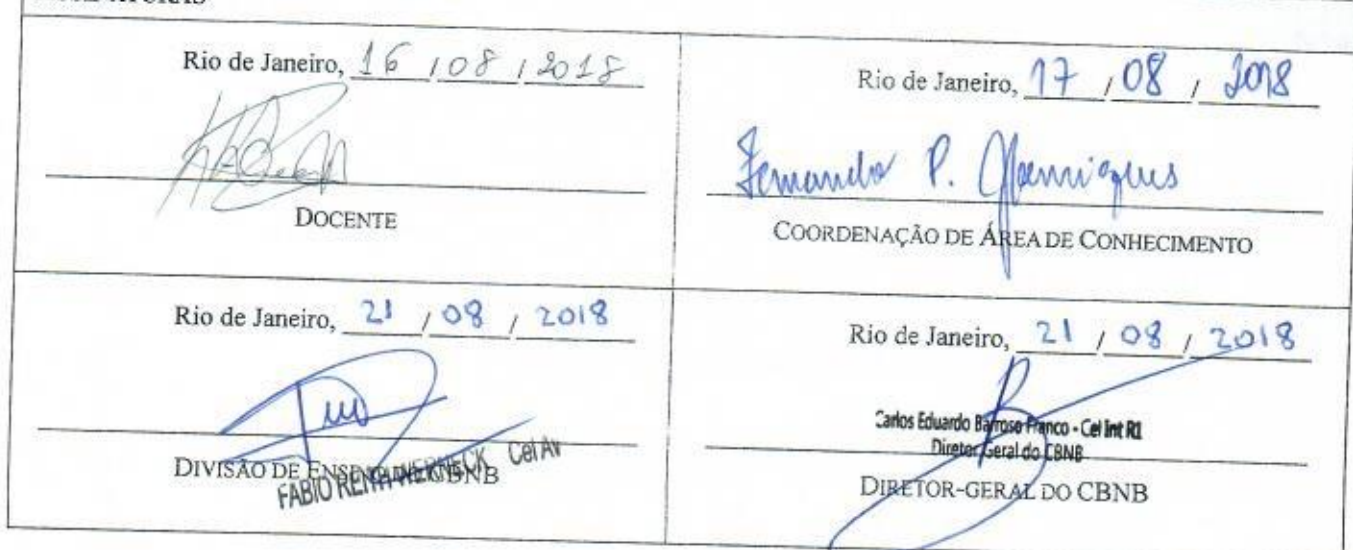 Rio de Janeiro, 16 / 08 / 2018
DOCENTE
Rio de Janeiro, 17 / 08 / 2018
Fernanda P. Henriques
COORDENAÇÃO DE ÁREA DE CONHECIMENTO
Rio de Janeiro, 21 / 08 / 2018
DIVISÃO DE ENSINO DO CBNB
FABIO Cel Av
Rio de Janeiro, 21 / 08 / 2018
Carlos Eduardo Barroso Franco - Cel Int R1
Diretor Geral do CBNB
DIRETOR-GERAL DO CBNB